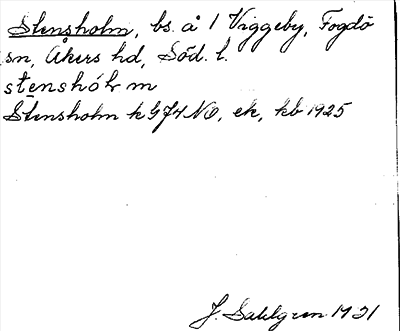 Stensholm, bs. å 1 Viggeby, Fogdö
sn, Åkers hd, Söd. l.
stenshólm
Stensholm k G74 NO, ek, kb 1925
J. Sahlgren 1931